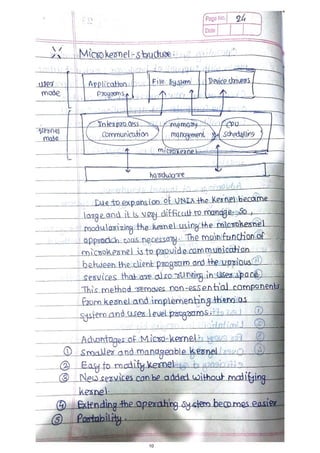 Page No. 24
Date
Microkernel-structure:
user mode
Application Programs
File System
Device drivers
kernel mode
Interprocess Communication
memory management
CPU scheduling
microkernel
hardware
Due to expansion of UNIX the kernel became
large and it is very difficult to manage. So
modularizing the kernel using the microkernel
approach was necessary. The main function of
microkernel is to provide communication
between the client program and the various
services that are also running in user space.
This method removes non-essential components
from kernel and implementing them as
system and user level programs.
Advantages of Micro-kernel
① Smaller and manageable kernel
② Easy to modify kernel
③ New services can be added without modifying
kernel.
④ Extending the operating system becomes easier
⑤ Portability.
10